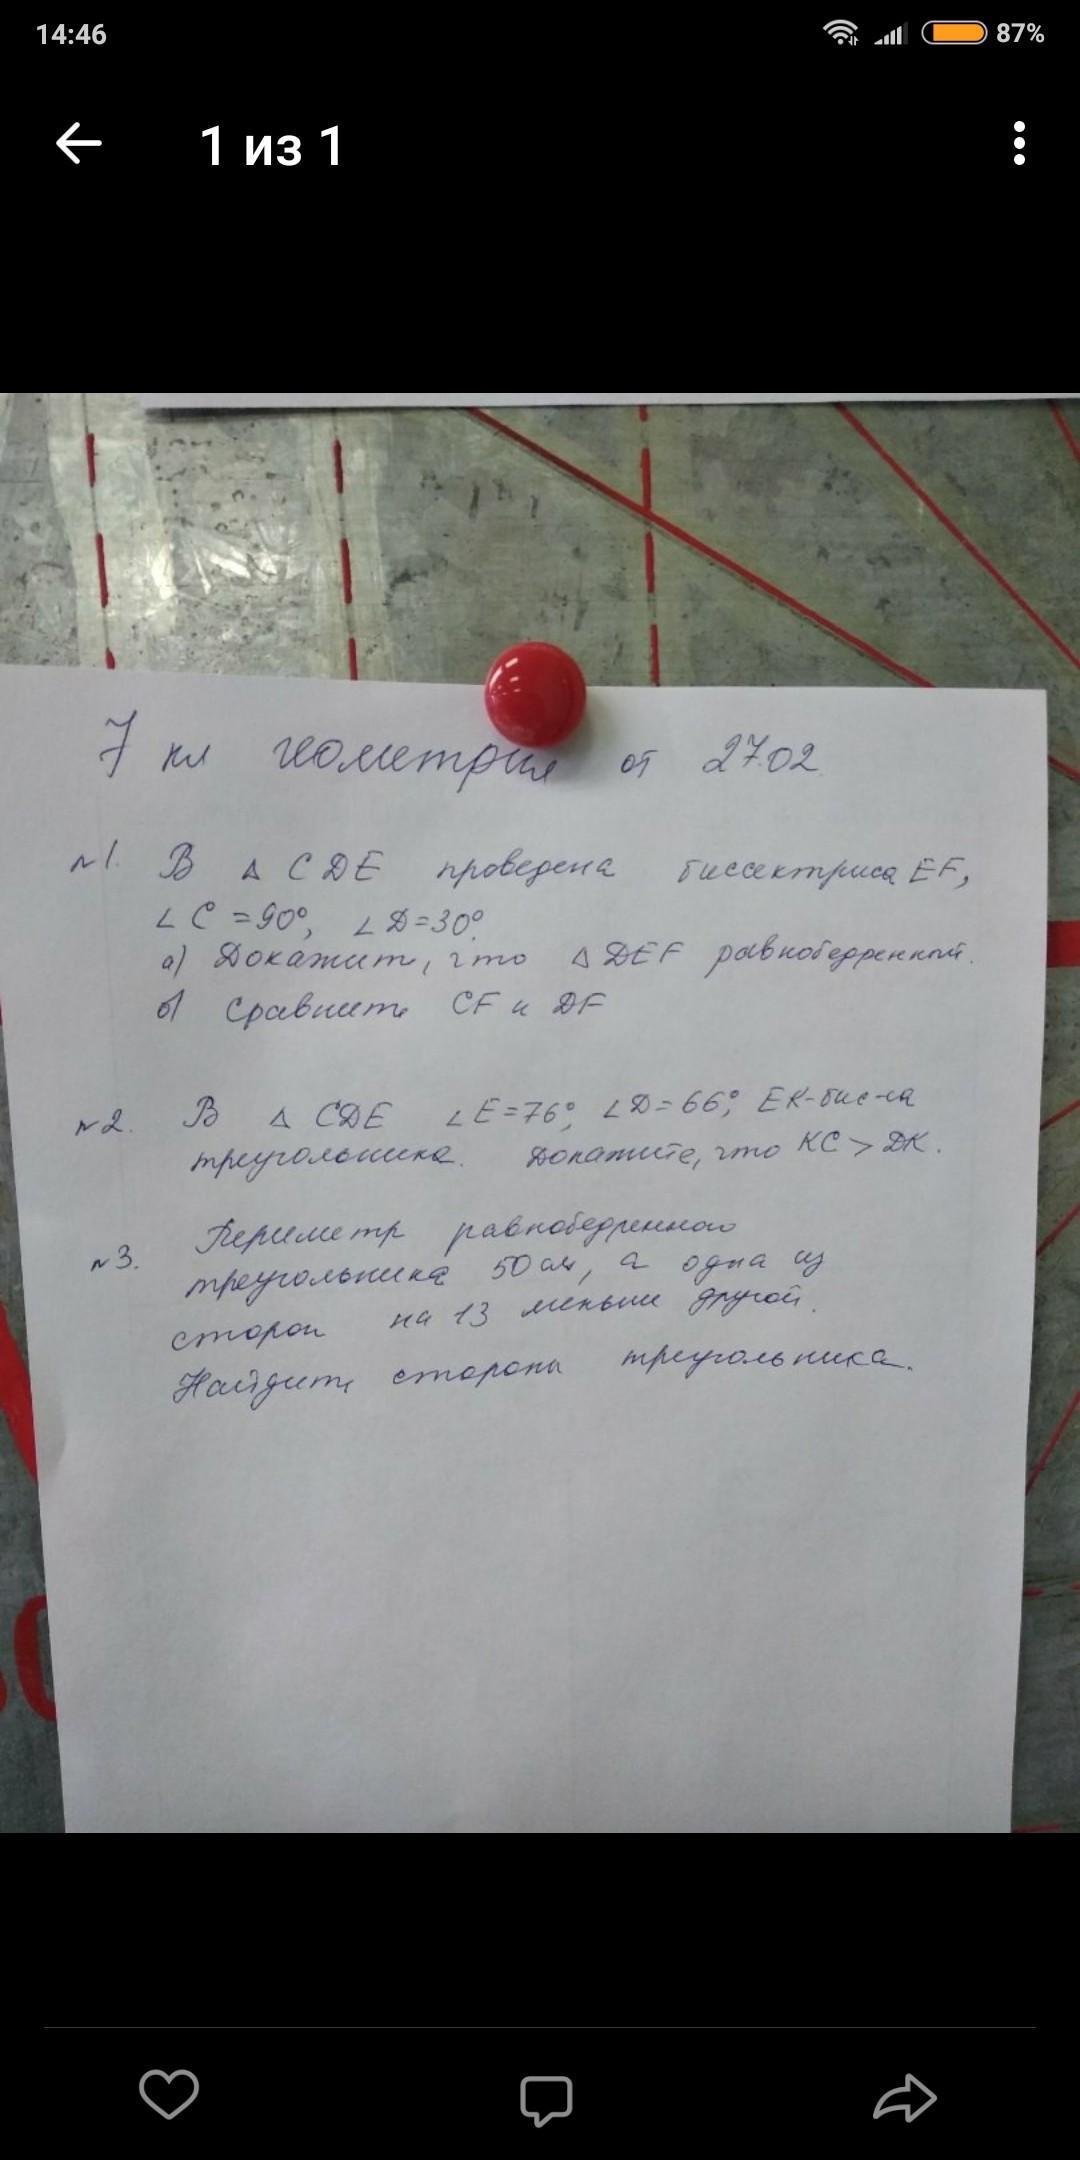 14:46
87%
1 из 1
7 кл геометрия от 27.02.
№1. В △ CDE проведена биссектриса EF,
∠C = 90°, ∠D = 30°.
а) Докажит, что △ DEF равнобедренный.
б) Сравнить CF и DF
№2. В △ CDE ∠E = 76°, ∠D = 66°, EK-бис-са
треугольника. Докажите, что KC > DK.
№3. Периметр равнобедренного
треугольника 50 см, а одна из
сторон на 13 меньше другой.
Найдите стороны треугольника.